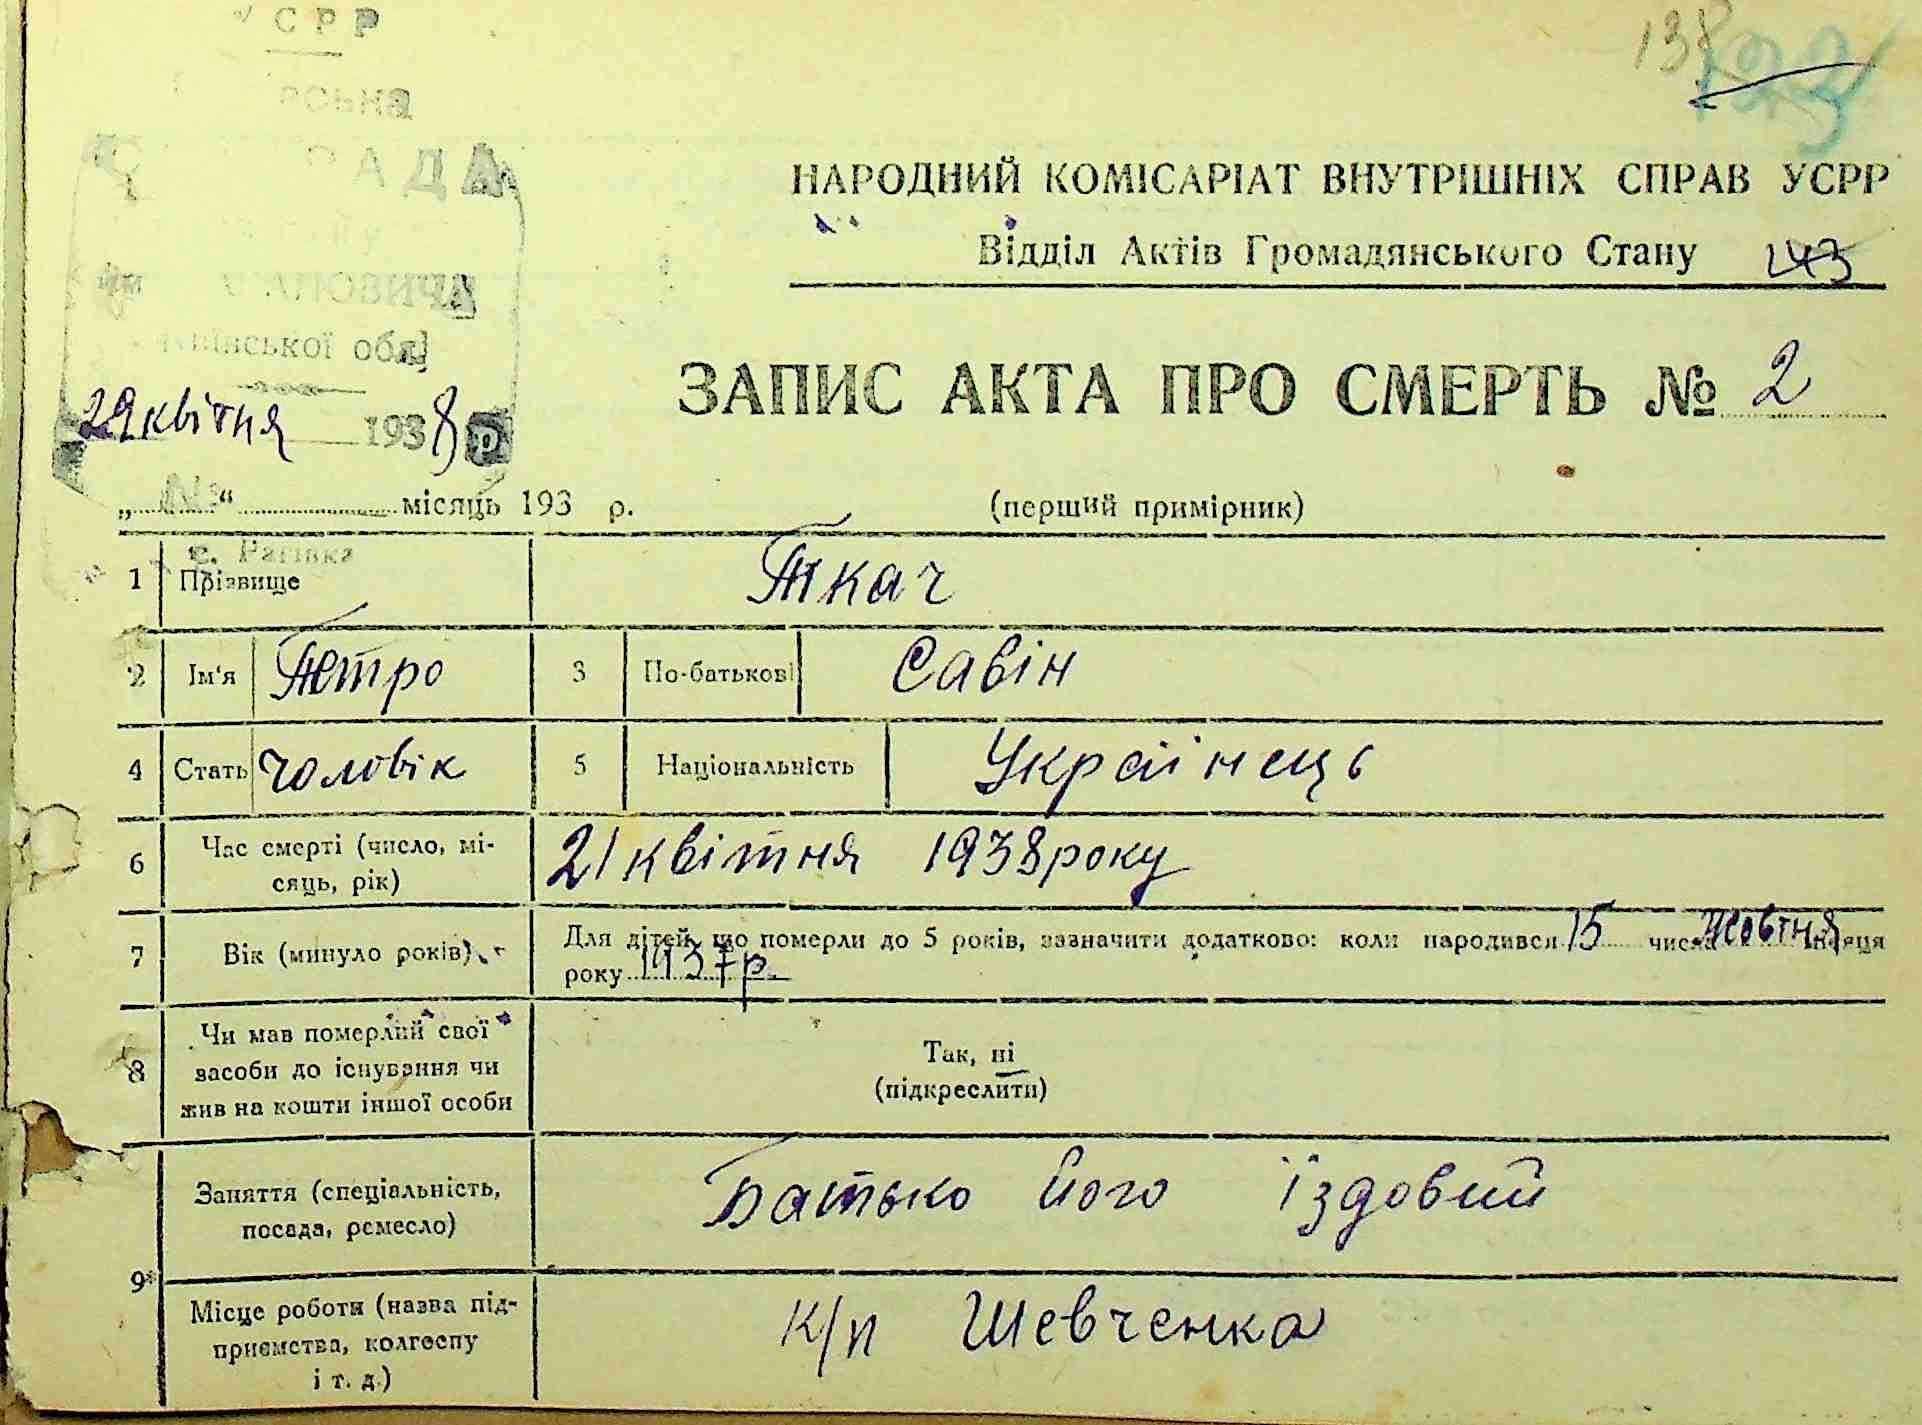 УСРР
138
123
РАДА
НАРОДНИЙ КОМІСАРІАТ ВНУТРІШНІХ СПРАВ УСРР
Відділ Актів Громадянського Стану 143
обл.
ЗАПИС АКТА ПРО СМЕРТЬ № 2
29 квітня 1938 р
„ № “ місяць 193 р. (перший примірник)
с. Рагівка
1 Прізвище Ткач
2 Ім'я Петро 3 По-батькові Савін
4 Стать чоловік 5 Національність Українець
6 Час смерті (число, мі-
сяць, рік) 21 квітня 1938 року
7 Вік (минуло років) Для дітей, що померли до 5 років, зазначити додатково: коли народився 15 числа Жовтня місяця
року 1937 р.
8 Чи мав померлий свої
засоби до існування чи
жив на кошти іншої особи
Так, ні
(підкреслити)
9* Заняття (спеціальність,
посада, ремесло) Батько його їздовий
Місце роботи (назва під-
приємства, колгоспу
і т. д.) к/п Шевченка